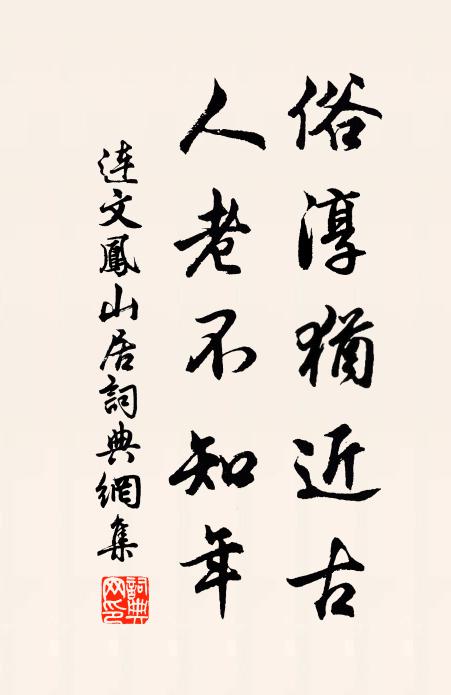 俗淳猶近古
人老不知年
连文鳳山居詞典網集
詞典网印